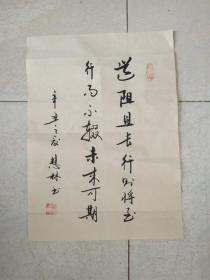 道阻且长行则将至
行而不辍未来可期
辛丑之秋慧林书